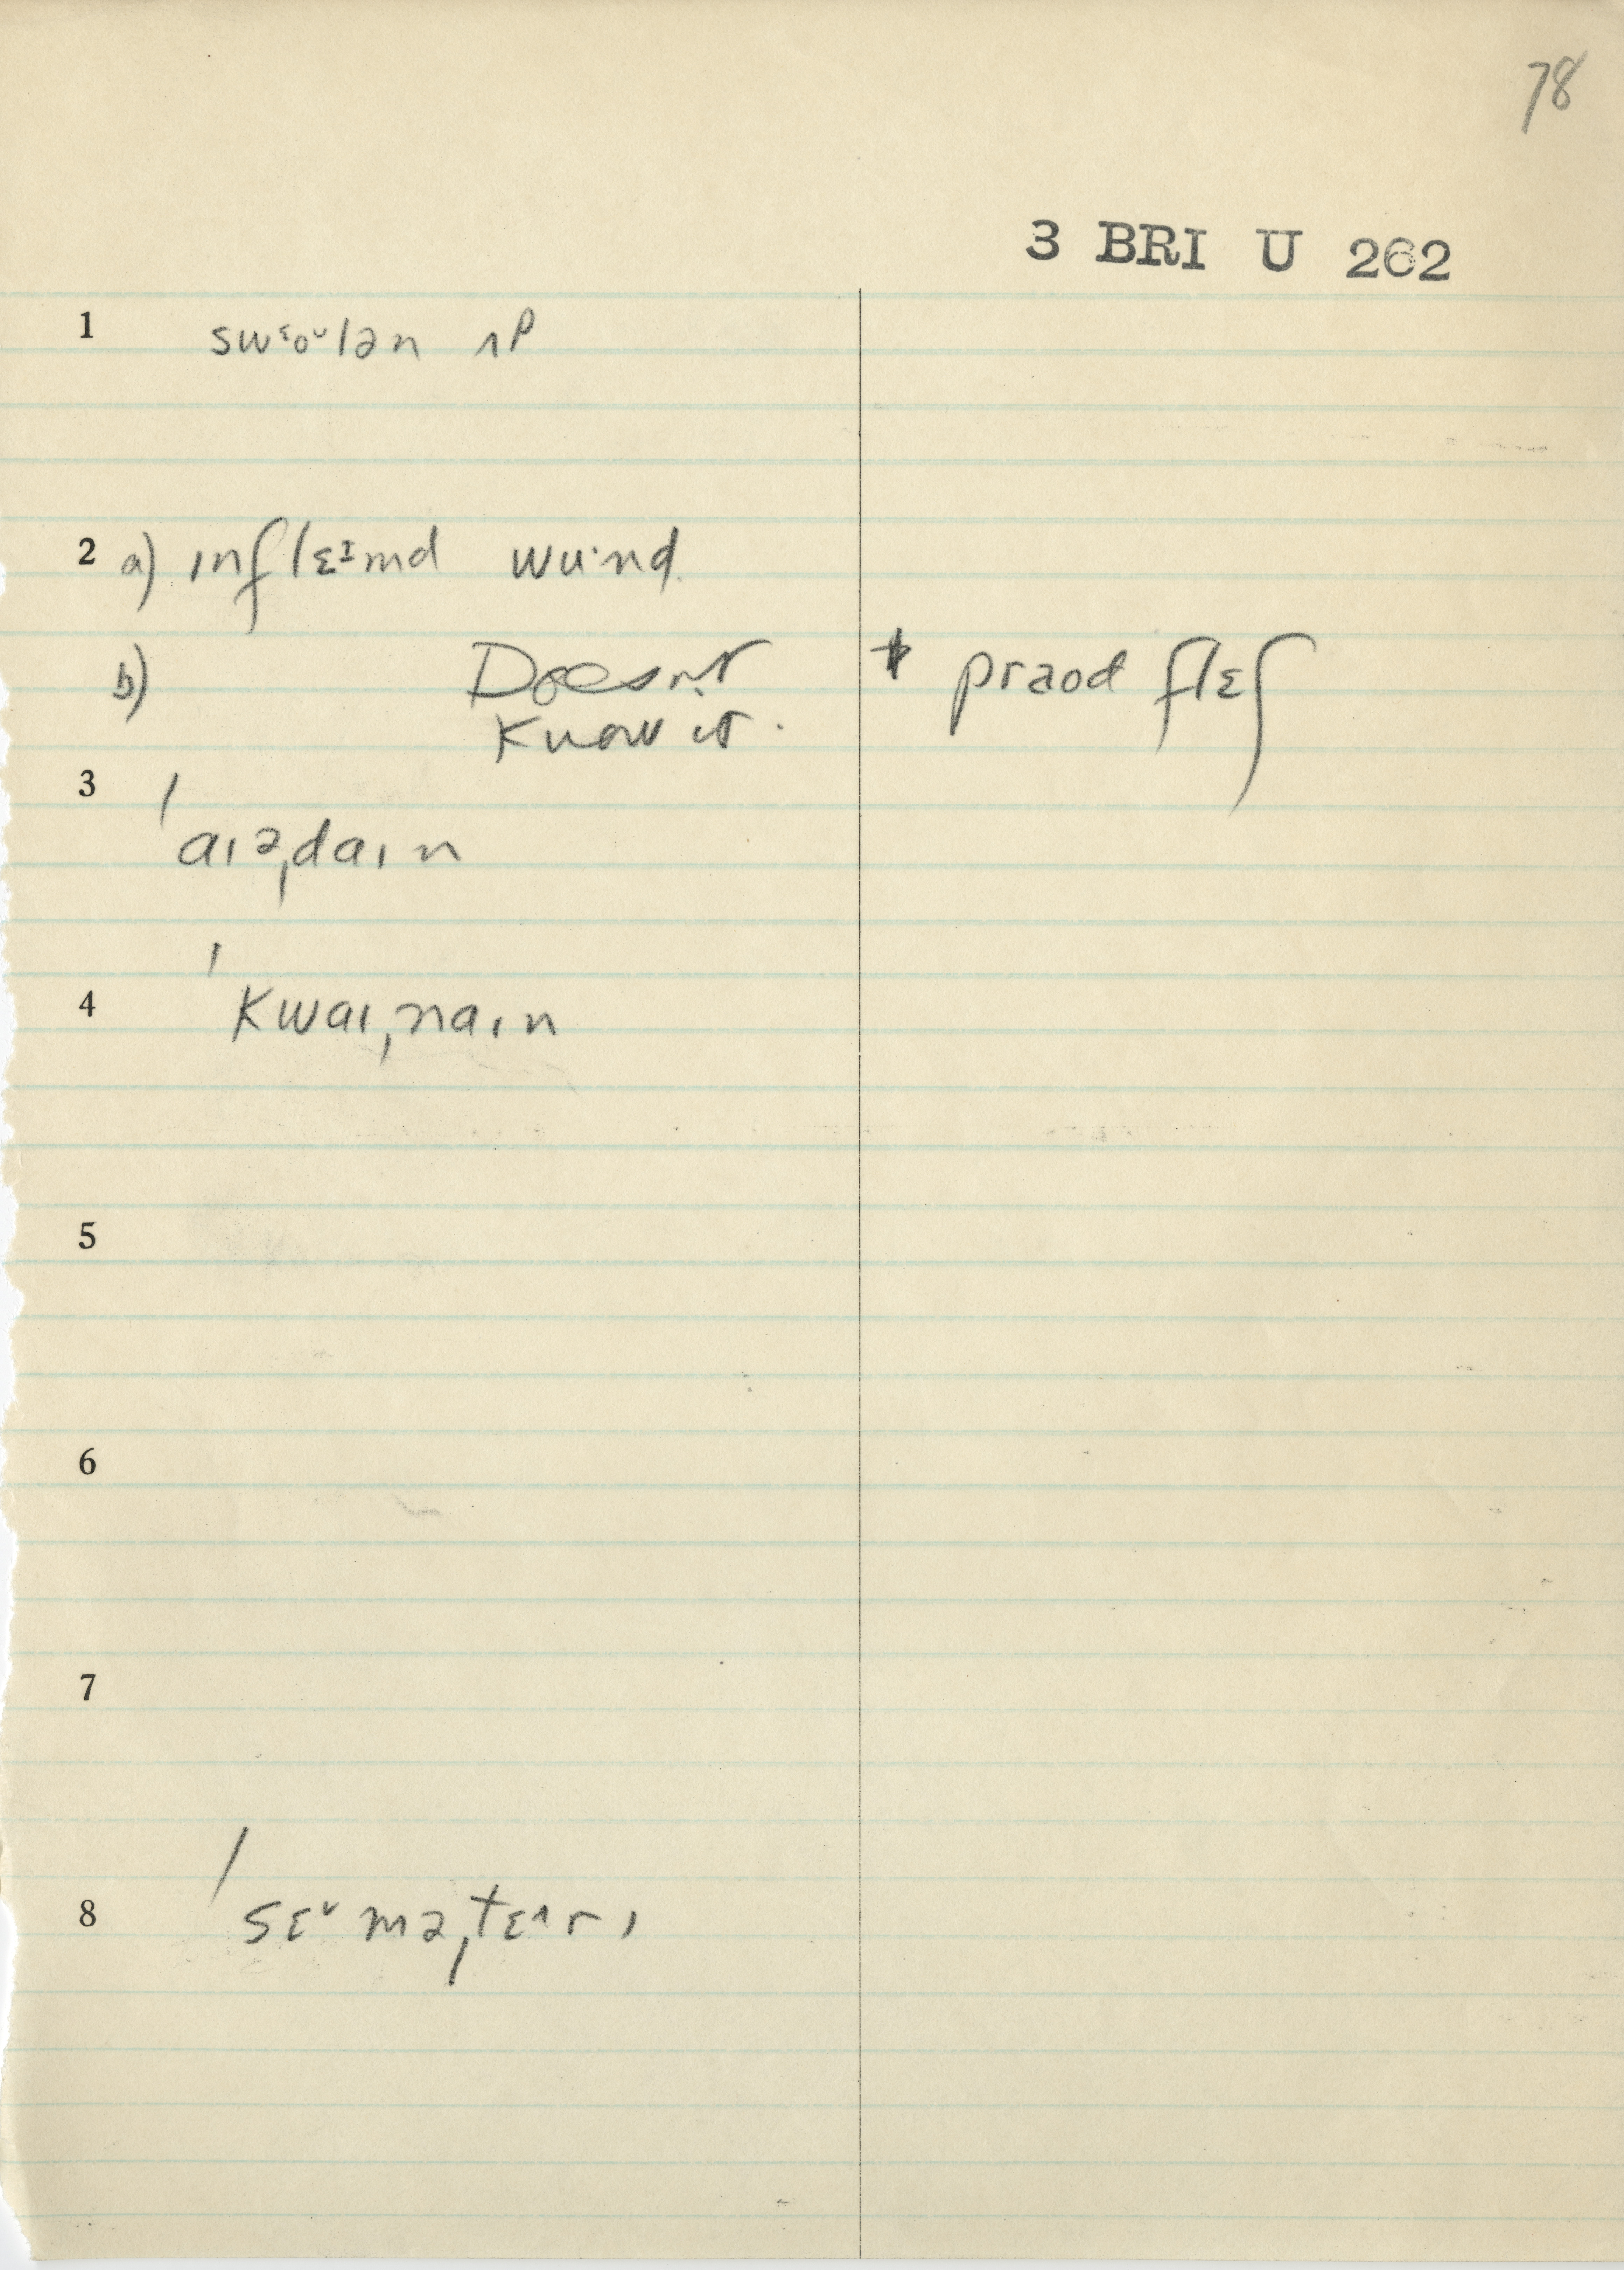 78
3 BRI U 262
1 swᵋoᵛlən ʌp
2 a) ɪnflɛᴵmd wu·nd
b) Doesn't * praʊd flɛʃ
Know it.
3 ˈaɪəˌdaɪn
4 ˈkwaɪˌnaɪn
5
6
7
8 ˈsɛᵛməˌtɛ^rɪ